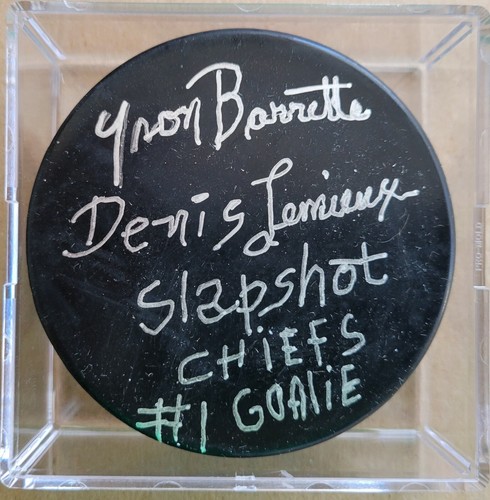 Yvon Barrette
Denis Lemieux
Slapshot
CHiEFS
#1 GOAliE
PRO-MOLD